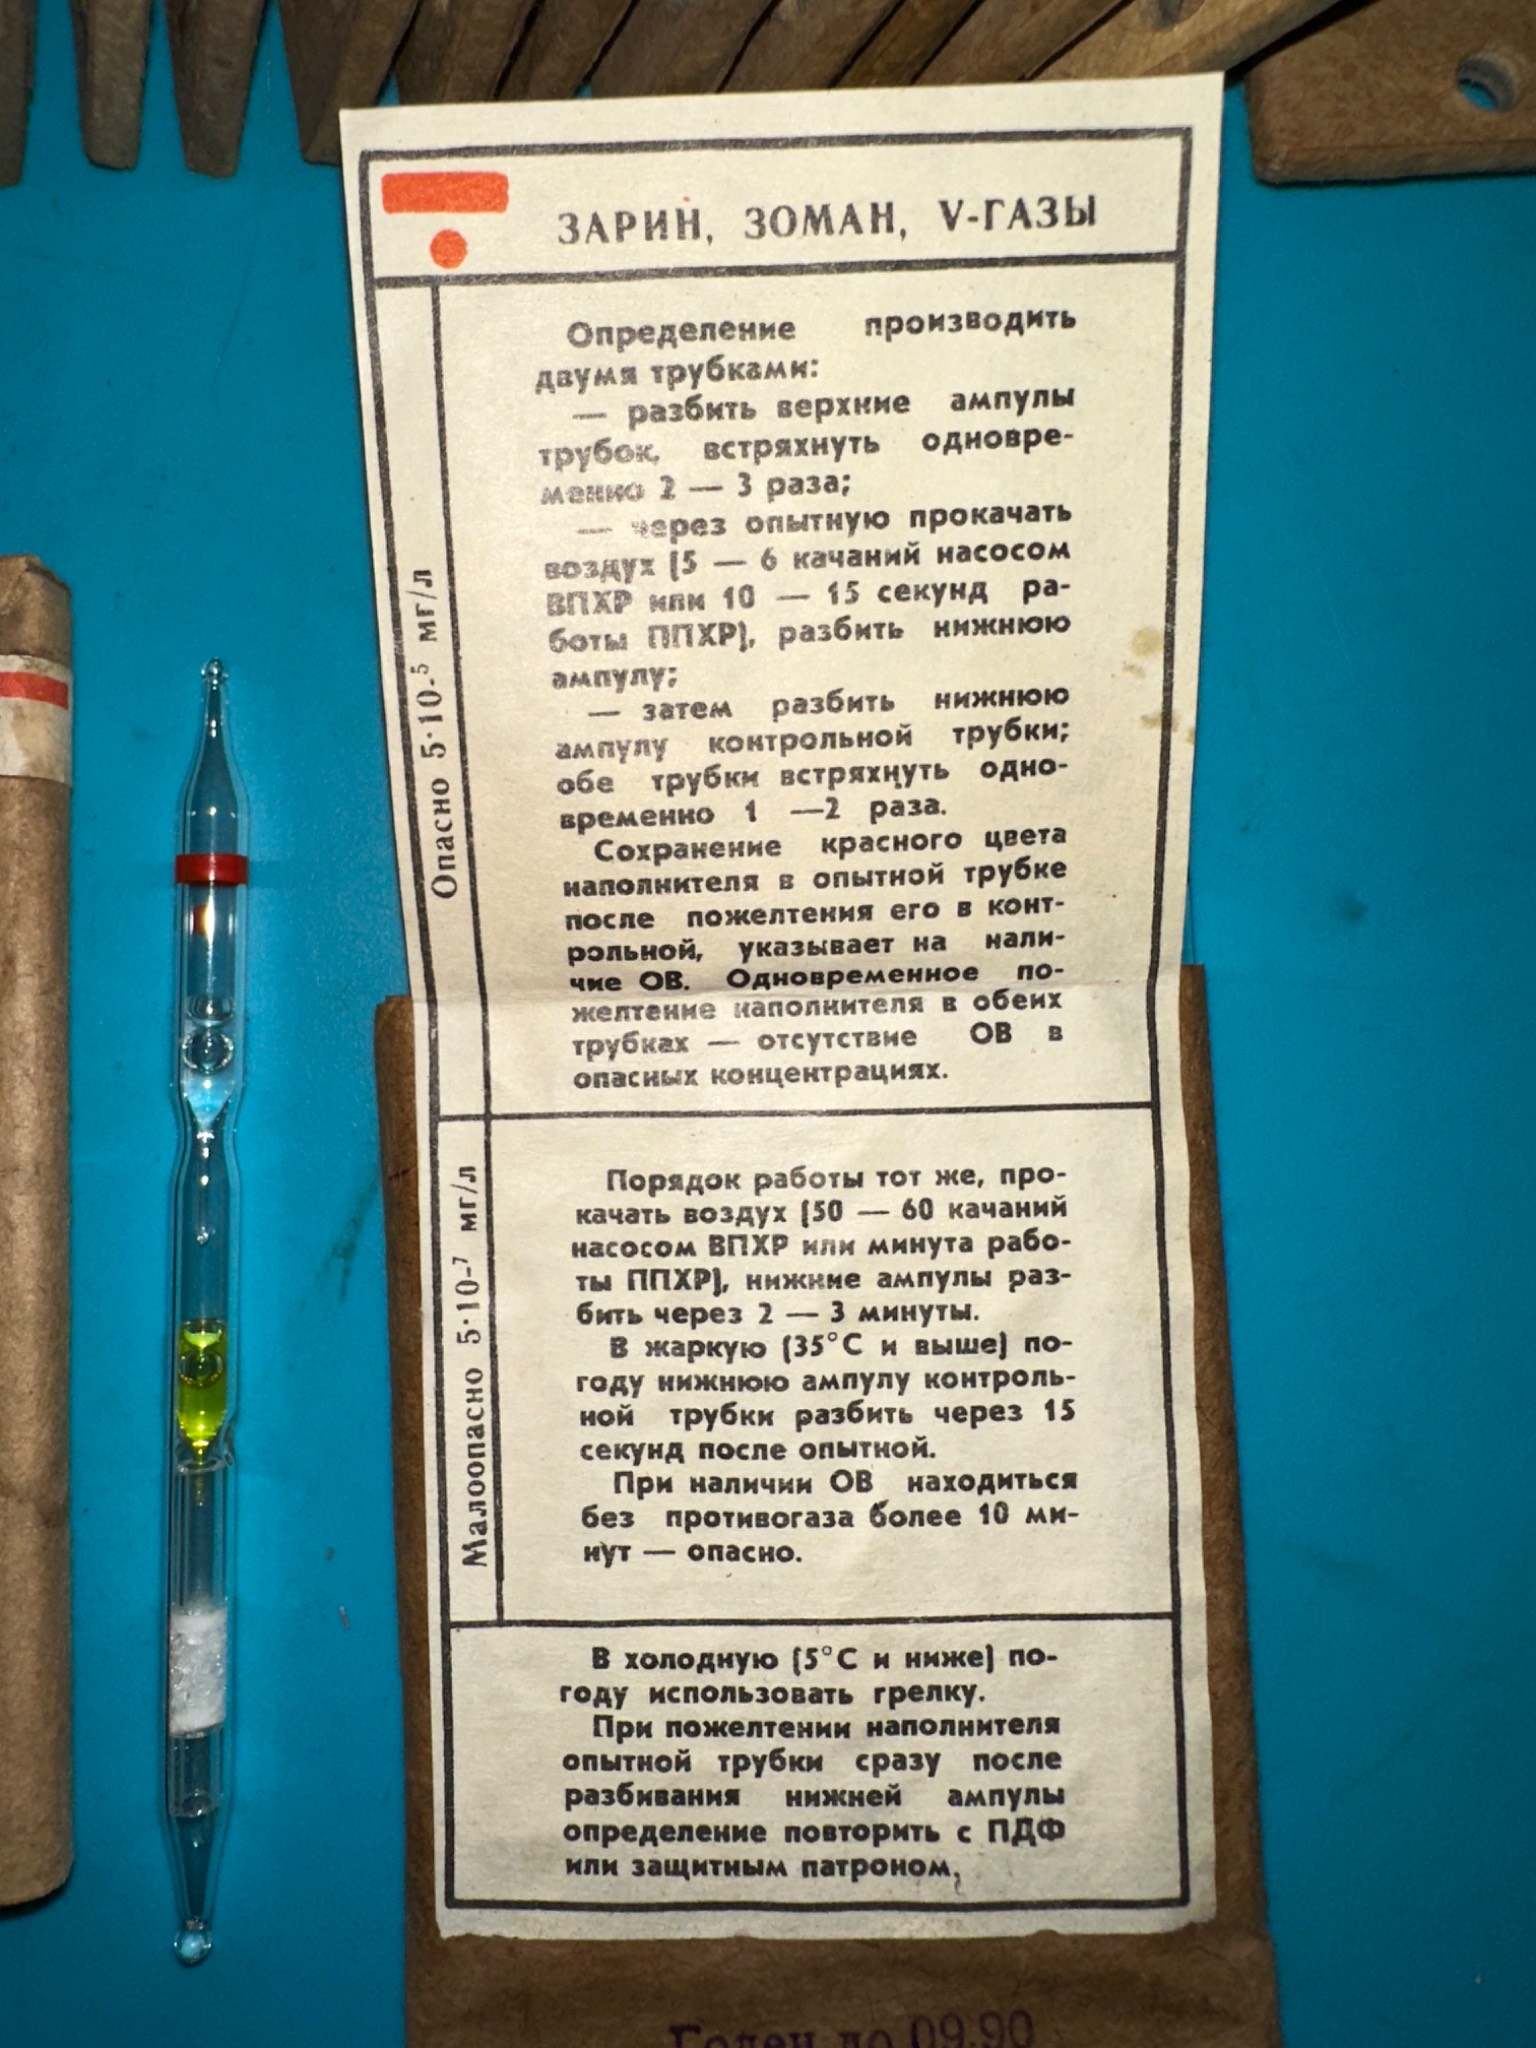 ЗАРИН, ЗОМАН, V-ГАЗЫ
Опасно 5·10-⁵ мг/л
Определение производить
двумя трубками:
— разбить верхние ампулы
трубок, встряхнуть одновре-
менно 2 — 3 раза;
— через опытную прокачать
воздух (5 — 6 качаний насосом
ВПХР или 10 — 15 секунд ра-
боты ППХР), разбить нижнюю
ампулу;
— затем разбить нижнюю
ампулу контрольной трубки;
обе трубки встряхнуть одно-
временно 1 —2 раза.
Сохранение красного цвета
наполнителя в опытной трубке
после пожелтения его в конт-
рольной, указывает на нали-
чие ОВ. Одновременное по-
желтение наполнителя в обеих
трубках — отсутствие ОВ в
опасных концентрациях.
Малоопасно 5·10-⁷ мг/л
Порядок работы тот же, про-
качать воздух (50 — 60 качаний
насосом ВПХР или минута рабо-
ты ППХР), нижние ампулы раз-
бить через 2 — 3 минуты.
В жаркую (35°С и выше) по-
году нижнюю ампулу контроль-
ной трубки разбить через 15
секунд после опытной.
При наличии ОВ находиться
без противогаза более 10 ми-
нут — опасно.
В холодную (5°С и ниже) по-
году использовать грелку.
При пожелтении наполнителя
опытной трубки сразу после
разбивания нижней ампулы
определение повторить с ПДФ
или защитным патроном.
Годен до 09.90